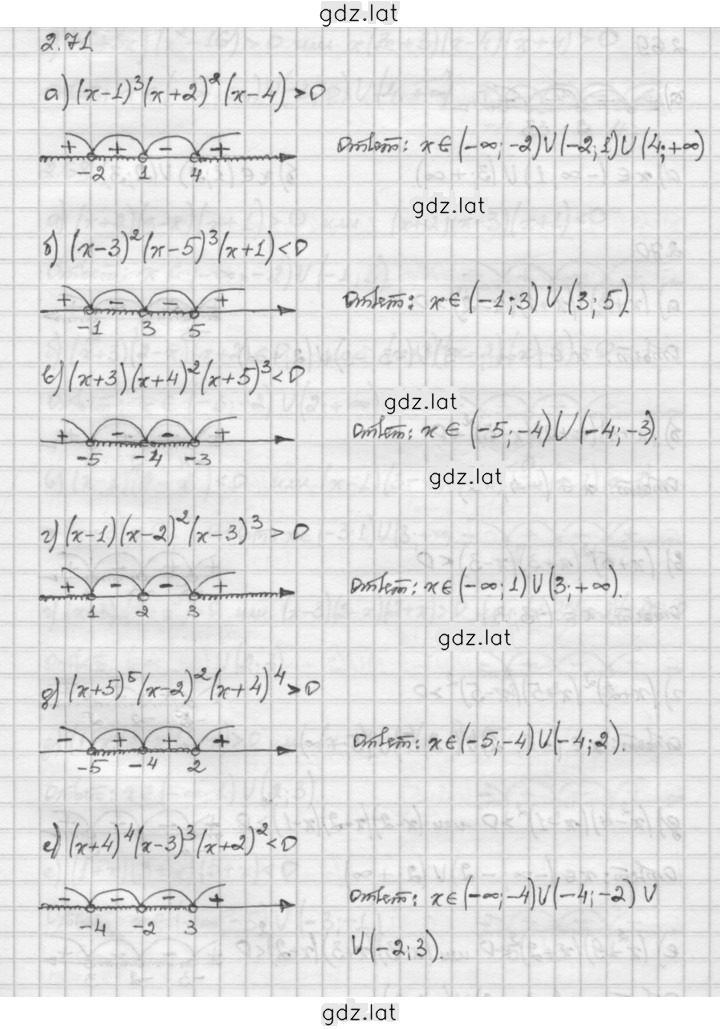 gdz.lat
2.71
а) (x-1)³(x+2)²(x-4)>0
+ + - +
-2 1 4
Ответ: x∈(-∞;-2)∪(-2;1)∪(4;+∞)
gdz.lat
б) (x-3)²(x-5)³(x+1)<0
+ - - +
-1 3 5
Ответ: x∈(-1;3)∪(3;5).
в) (x+3)(x+4)²(x+5)³<0
+ - - +
-5 -4 -3
gdz.lat
Ответ: x∈(-5;-4)∪(-4;-3).
gdz.lat
г) (x-1)(x-2)²(x-3)³>0
+ - - +
1 2 3
Ответ: x∈(-∞;1)∪(3;+∞).
gdz.lat
д) (x+5)⁵(x-2)²(x+4)⁴>0
- + + +
-5 -4 2
Ответ: x∈(-5;-4)∪(-4;2).
е) (x+4)⁴(x-3)³(x+2)²<0
- - - +
-4 -2 3
Ответ: x∈(-∞;-4)∪(-4;-2)∪
∪(-2;3).
gdz.lat